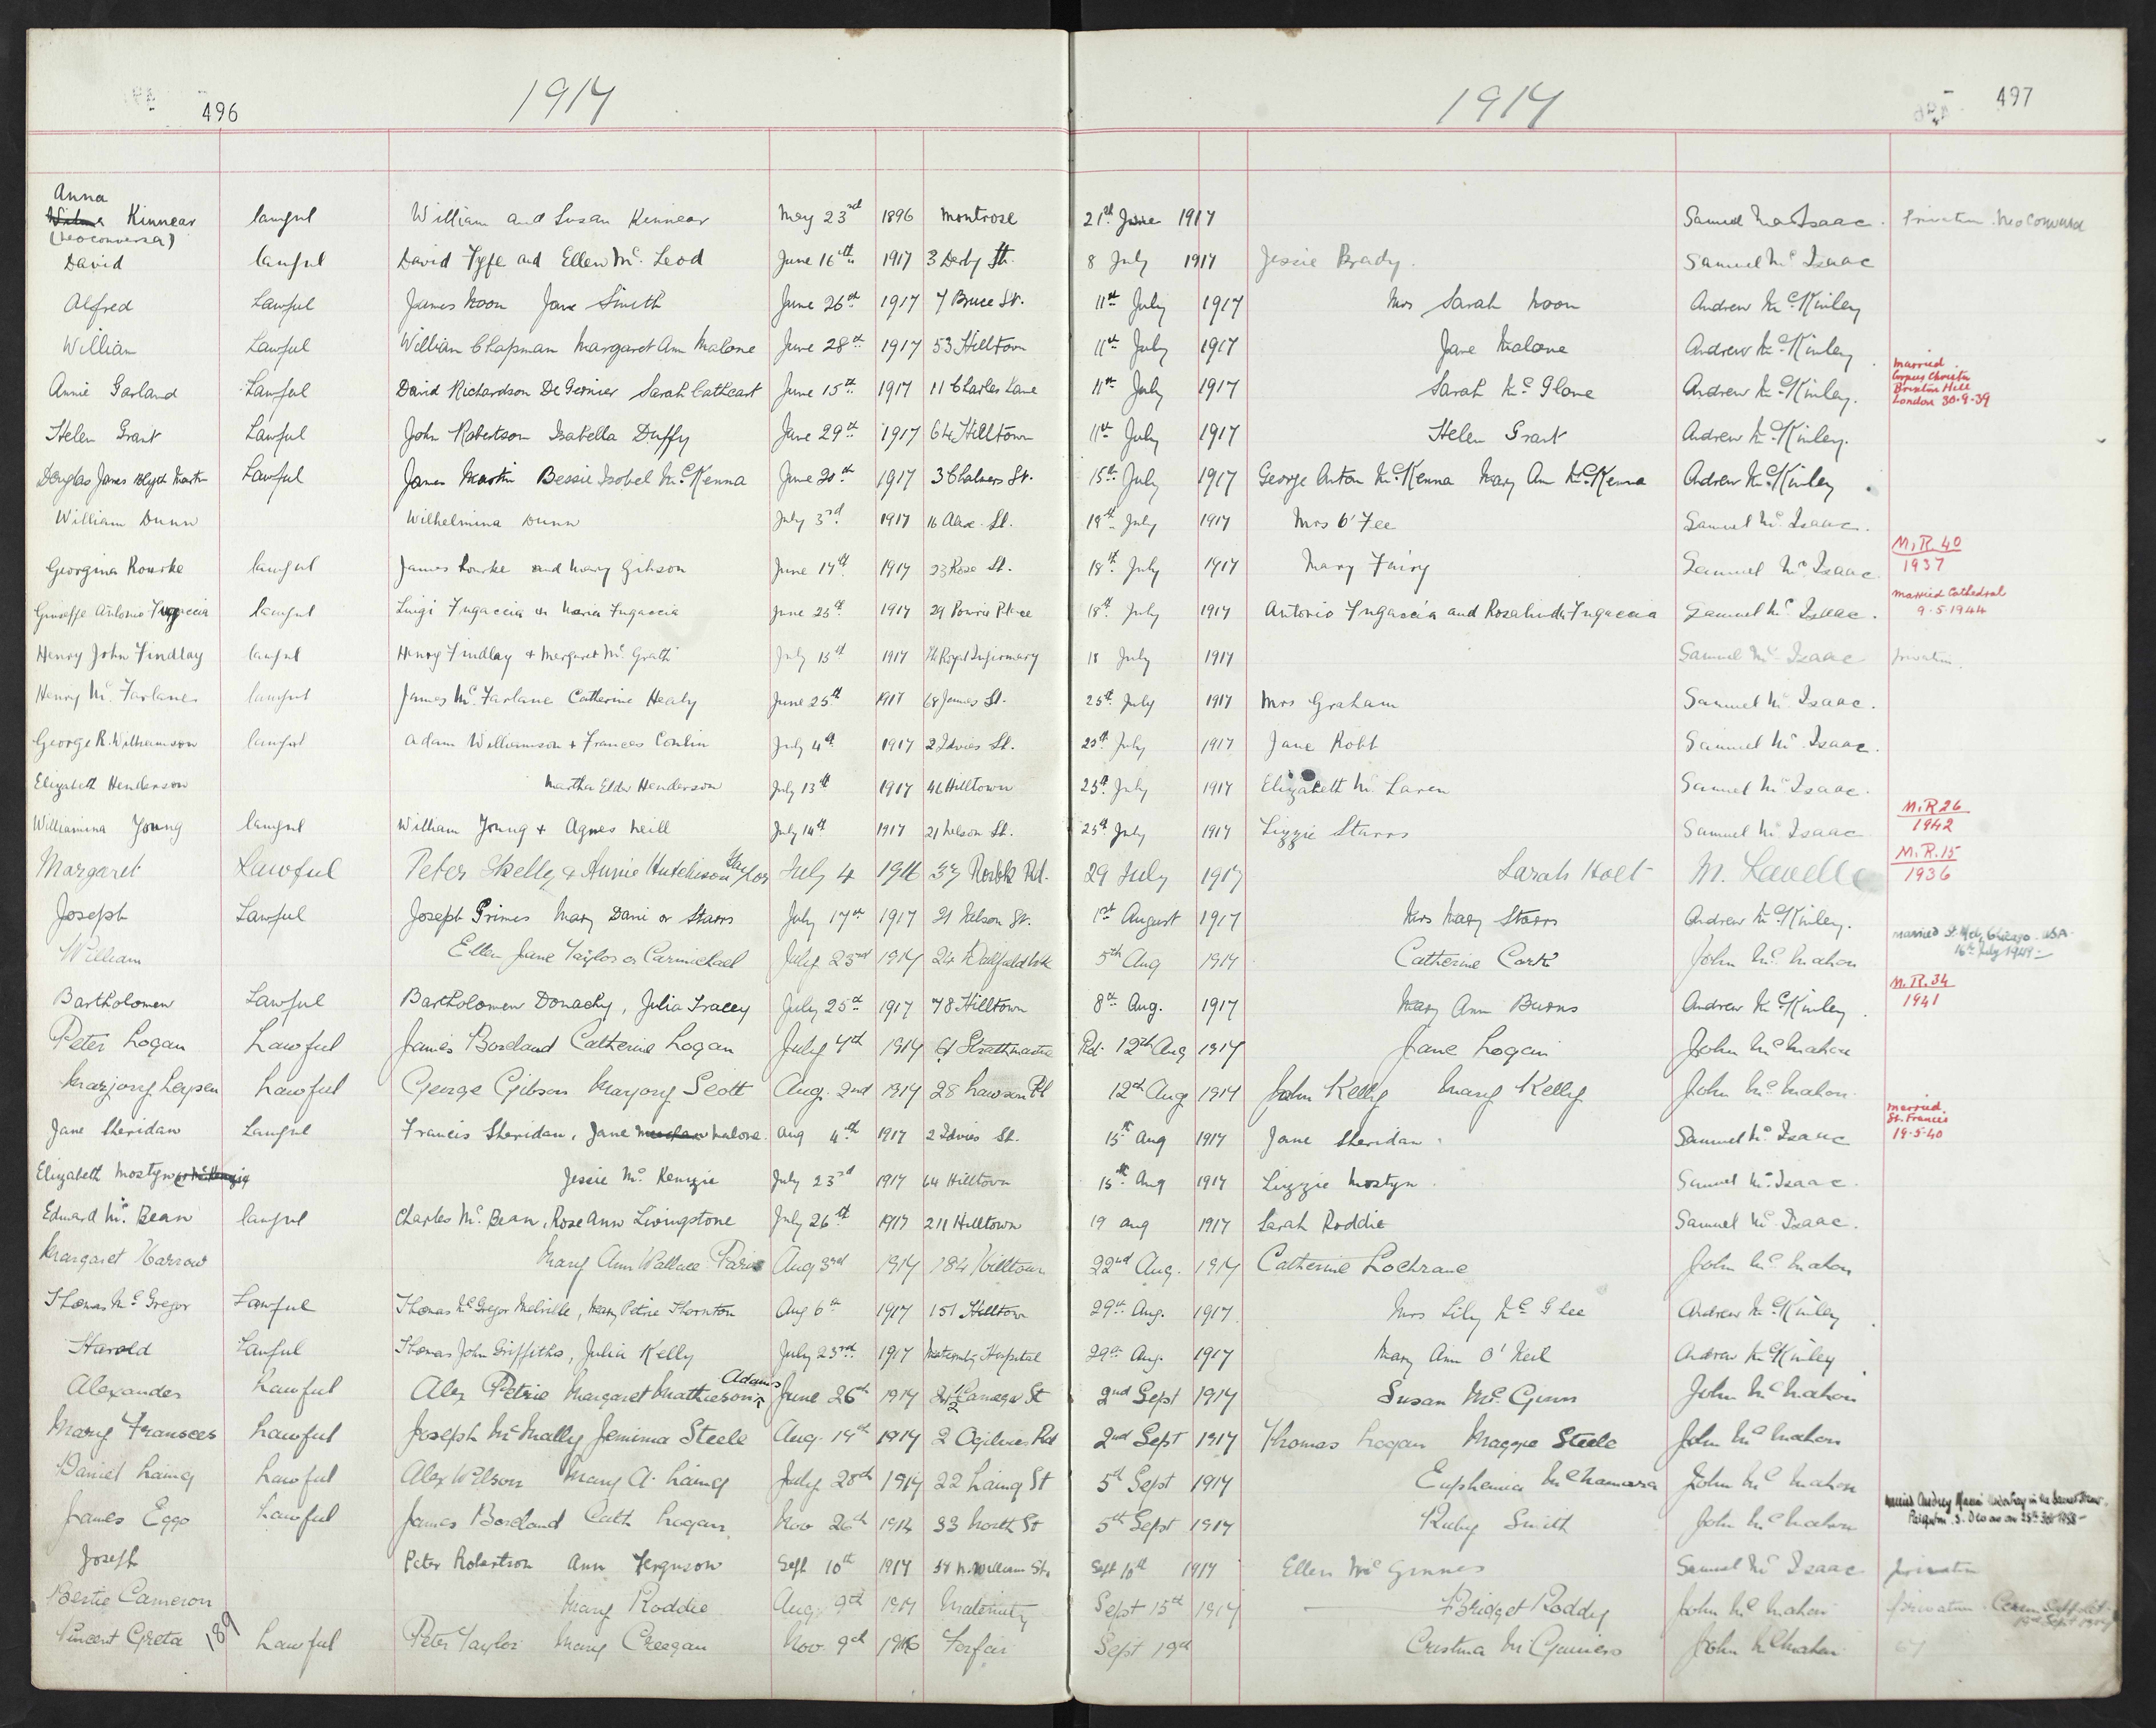 496 1917
1917 497
Anna
Kinnear lawful William and Susan Kinnear May 23rd 1896 Montrose 21st June 1917 Samuel McIsaac. Privatim Neo Conversa
(Neo conversa)
David lawful David Fyfe and Ellen Mc. Leod June 16th 1917 3 Derby St. 8 July 1917 Jessie Brady. Samuel Mc Isaac
Alfred Lawful James Noon Jane Smith June 26th 1917 7 Bruce St. 11th July 1917 Mrs Sarah Noon Andrew McKinley
William Lawful William Chapman Margaret Ann Malone June 28th 1917 53 Hilltown 11th July 1917 Jane Malone Andrew McKinley
Annie Garland Lawful David Richardson Sarah Cathcart June 15th 1917 11 Charles Lane 11th July 1917 Sarah Mc Glone Andrew McKinley. Married Corpus Christi Brixton Hill London 30-9-39
Helen Grant Lawful John Robertson Isabella Duffy June 29th 1917 64 Hilltown 11th July 1917 Helen Grant Andrew McKinley.
Douglas James Blyth Martin Lawful James Martin Bessie Isobel McKenna June 20th 1917 3 Chalmers St. 15th July 1917 George Anton McKenna Mary Ann McKenna Andrew McKinley
William Dunn Wilhelmina Dunn July 3rd 1917 16 Alex. St. 18th July 1917 Mrs O'Fee Samuel Mc Isaac.
Georgina Rourke lawful James Rourke and Mary Gibson June 17th 1917 23 Rose St. 18th July 1917 Mary Fairy Samuel Mc Isaac M.R. 40 1937
Giuseffe Antonio Fugaccia lawful Luigi Fugaccia Maria Fugaccia June 25th 1917 29 Powrie Place 18th July 1917 Antonio Fugaccia and Rosalinda Fugaccia Samuel Mc Isaac. Married Cathedral 9-5-1944
Henry John Findlay lawful Henry Findlay + Margaret Mc. Grath July 15th 1917 Royal Infirmary 18 July 1917 Samuel Mc Isaac privatim.
Henry Mc. Farlane lawful James Mc. Farlane Catherine Healy June 25th 1917 68 James St. 25th July 1917 Mrs Graham Samuel Mc Isaac.
George R. Williamson lawful Adam Williamson + Frances Conlin July 4th 1917 2 Idvies St. 25th July 1917 Jane Robb Samuel Mc Isaac.
Elizabeth Henderson Martha Elder Henderson July 13th 1917 46 Hilltown 25th July 1917 Elizabeth Mc. Laren Samuel Mc Isaac.
Williamina Young lawful William Young + Agnes Neill July 14th 1917 21 Nelson St. 25th July 1917 Lizzie Starrs Samuel Mc Isaac M.R 26 1942
Margaret Lawful Peter Skelly & Annie Hutchison Taylor July 4 1916 Rd. 29 July 1917 Sarah Holt M. Lavelle M.R. 15 1936
Joseph Lawful Joseph Grimes Mary or Starrs July 17th 1917 21 Nelson St. 1st August 1917 Mrs Mary Starrs Andrew McKinley.
William Ellen Jane Taylor or Carmichael July 23rd 1917 24 5th Aug 1917 Catherine Cork John Mc Mahon Married Chicago U.S.A. 16th July 1949
Bartholomew Lawful Bartholomew Donachy, Julia Tracey July 25th 1917 78 Hilltown 8th Aug. 1917 Mary Ann Burns Andrew McKinley. M.R. 34 1941
Peter Logan Lawful James Boreland Catherine Logan July 4th 1917 61 Strathmartine Rd. 12th Aug 1917 Jane Logan John McMahon
Marjory Lawful George Gibson Marjory Scott Aug. 2nd 1917 28 Lawson Pl 12th Aug 1917 John Kelly Mary Kelly John Mc Mahon
Jane Sheridan Lawful Francis Sheridan, Jane Malone. Aug 4th 1917 2 Idvies St. 15th Aug 1917 Jane Sheridan Samuel Mc Isaac Married St. Francis 19-5-40
Elizabeth Mostyn or McKenzie Jessie Mc Kenzie July 23rd 1917 64 Hilltown 15th Aug 1917 Lizzie Mostyn Samuel Mc Isaac.
Edward Mc. Bean lawful Charles Mc. Bean, Rose Ann Livingstone July 26th 1917 211 Hilltown 19 Aug 1917 Sarah Roddie Samuel Mc Isaac.
Margaret Harrow Mary Ann Wallace Aug 3rd 1917 184 Hilltown 22nd Aug. 1917 Catherine Lochrane John Mc Mahon
Thomas McGregor Lawful Thomas McGregor Melville, Mary Petrie Thornton Aug 6th 1917 151 Hilltown 29th Aug. 1917 Mrs Lily McGhee Andrew McKinley
Harold Lawful Thomas John Griffiths, Julia Kelly July 23rd 1917 Maternity Hospital 29th Aug. 1917 Mary Ann O'Neil Andrew McKinley
Alexander Lawful Alex Petrie Margaret Mathieson Adams June 26th 1917 St 2nd Sept 1917 Susan Mc. Ginn John McMahon
Mary Frances Lawful Joseph McNally Jemima Steele Aug. 14th 1917 2 Ogilvies Rd 2nd Sept 1917 Thomas Logan Maggie Steele John Mc Mahon
Daniel Laing Lawful Alex Wilson Mary A. Laing July 20th 1917 22 Laing St 5th Sept 1917 Euphemia McNamara John Mc Mahon
James Eggo Lawful James Boreland Cath Logan Nov 26th 1914 33 North St 5th Sept 1917 Ruby Smith John McMahon
Joseph Peter Robertson Ann Ferguson Sept 10th 1917 54 N. William St. Sept 10th 1917 Ellen Mc Ginnes Samuel Mc Isaac privatim
Bertie Cameron Mary Roddie Aug 9th 1917 Maternity Sept 15th 1917 Bridget Roddy John Mc Mahon privatim
Vincent Greta 189 Lawful Peter Taylor Mary Creegan Nov. 9th 1916 Forfar Sept 19th Cristina McGuiness John McMahon